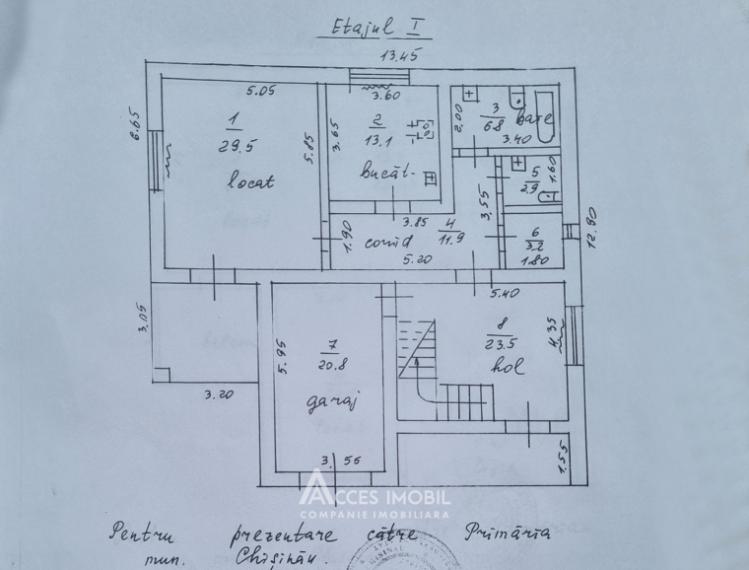 Etajul I
13.45
5.05
3.60
6.65
1
29.5
locat
5.85
3.65
2
13.1
bucăt.
2.00
3
6.8
baie
3.40
5
2.9
1.60
3.55
3.85
4
11.9
corid
1.90
5.20
6
3.2
1.80
12.90
3.05
3.20
5.95
7
20.8
garaj
3.56
5.40
8
23.5
hol
4.35
1.55
ACCES IMOBIL
COMPANIE IMOBILIARA
Pentru prezentare către Primăria
mun. Chișinău.